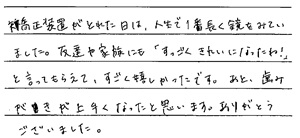 矯正装置がとれた日は、人生で1番長く鏡をみてい
ました。友達や家族にも「すっごくきれいになったね!」
と言ってもらえて、すごく嬉しかったです。あと、歯み
がきが上手くなったと思います。ありがとう
ございました。